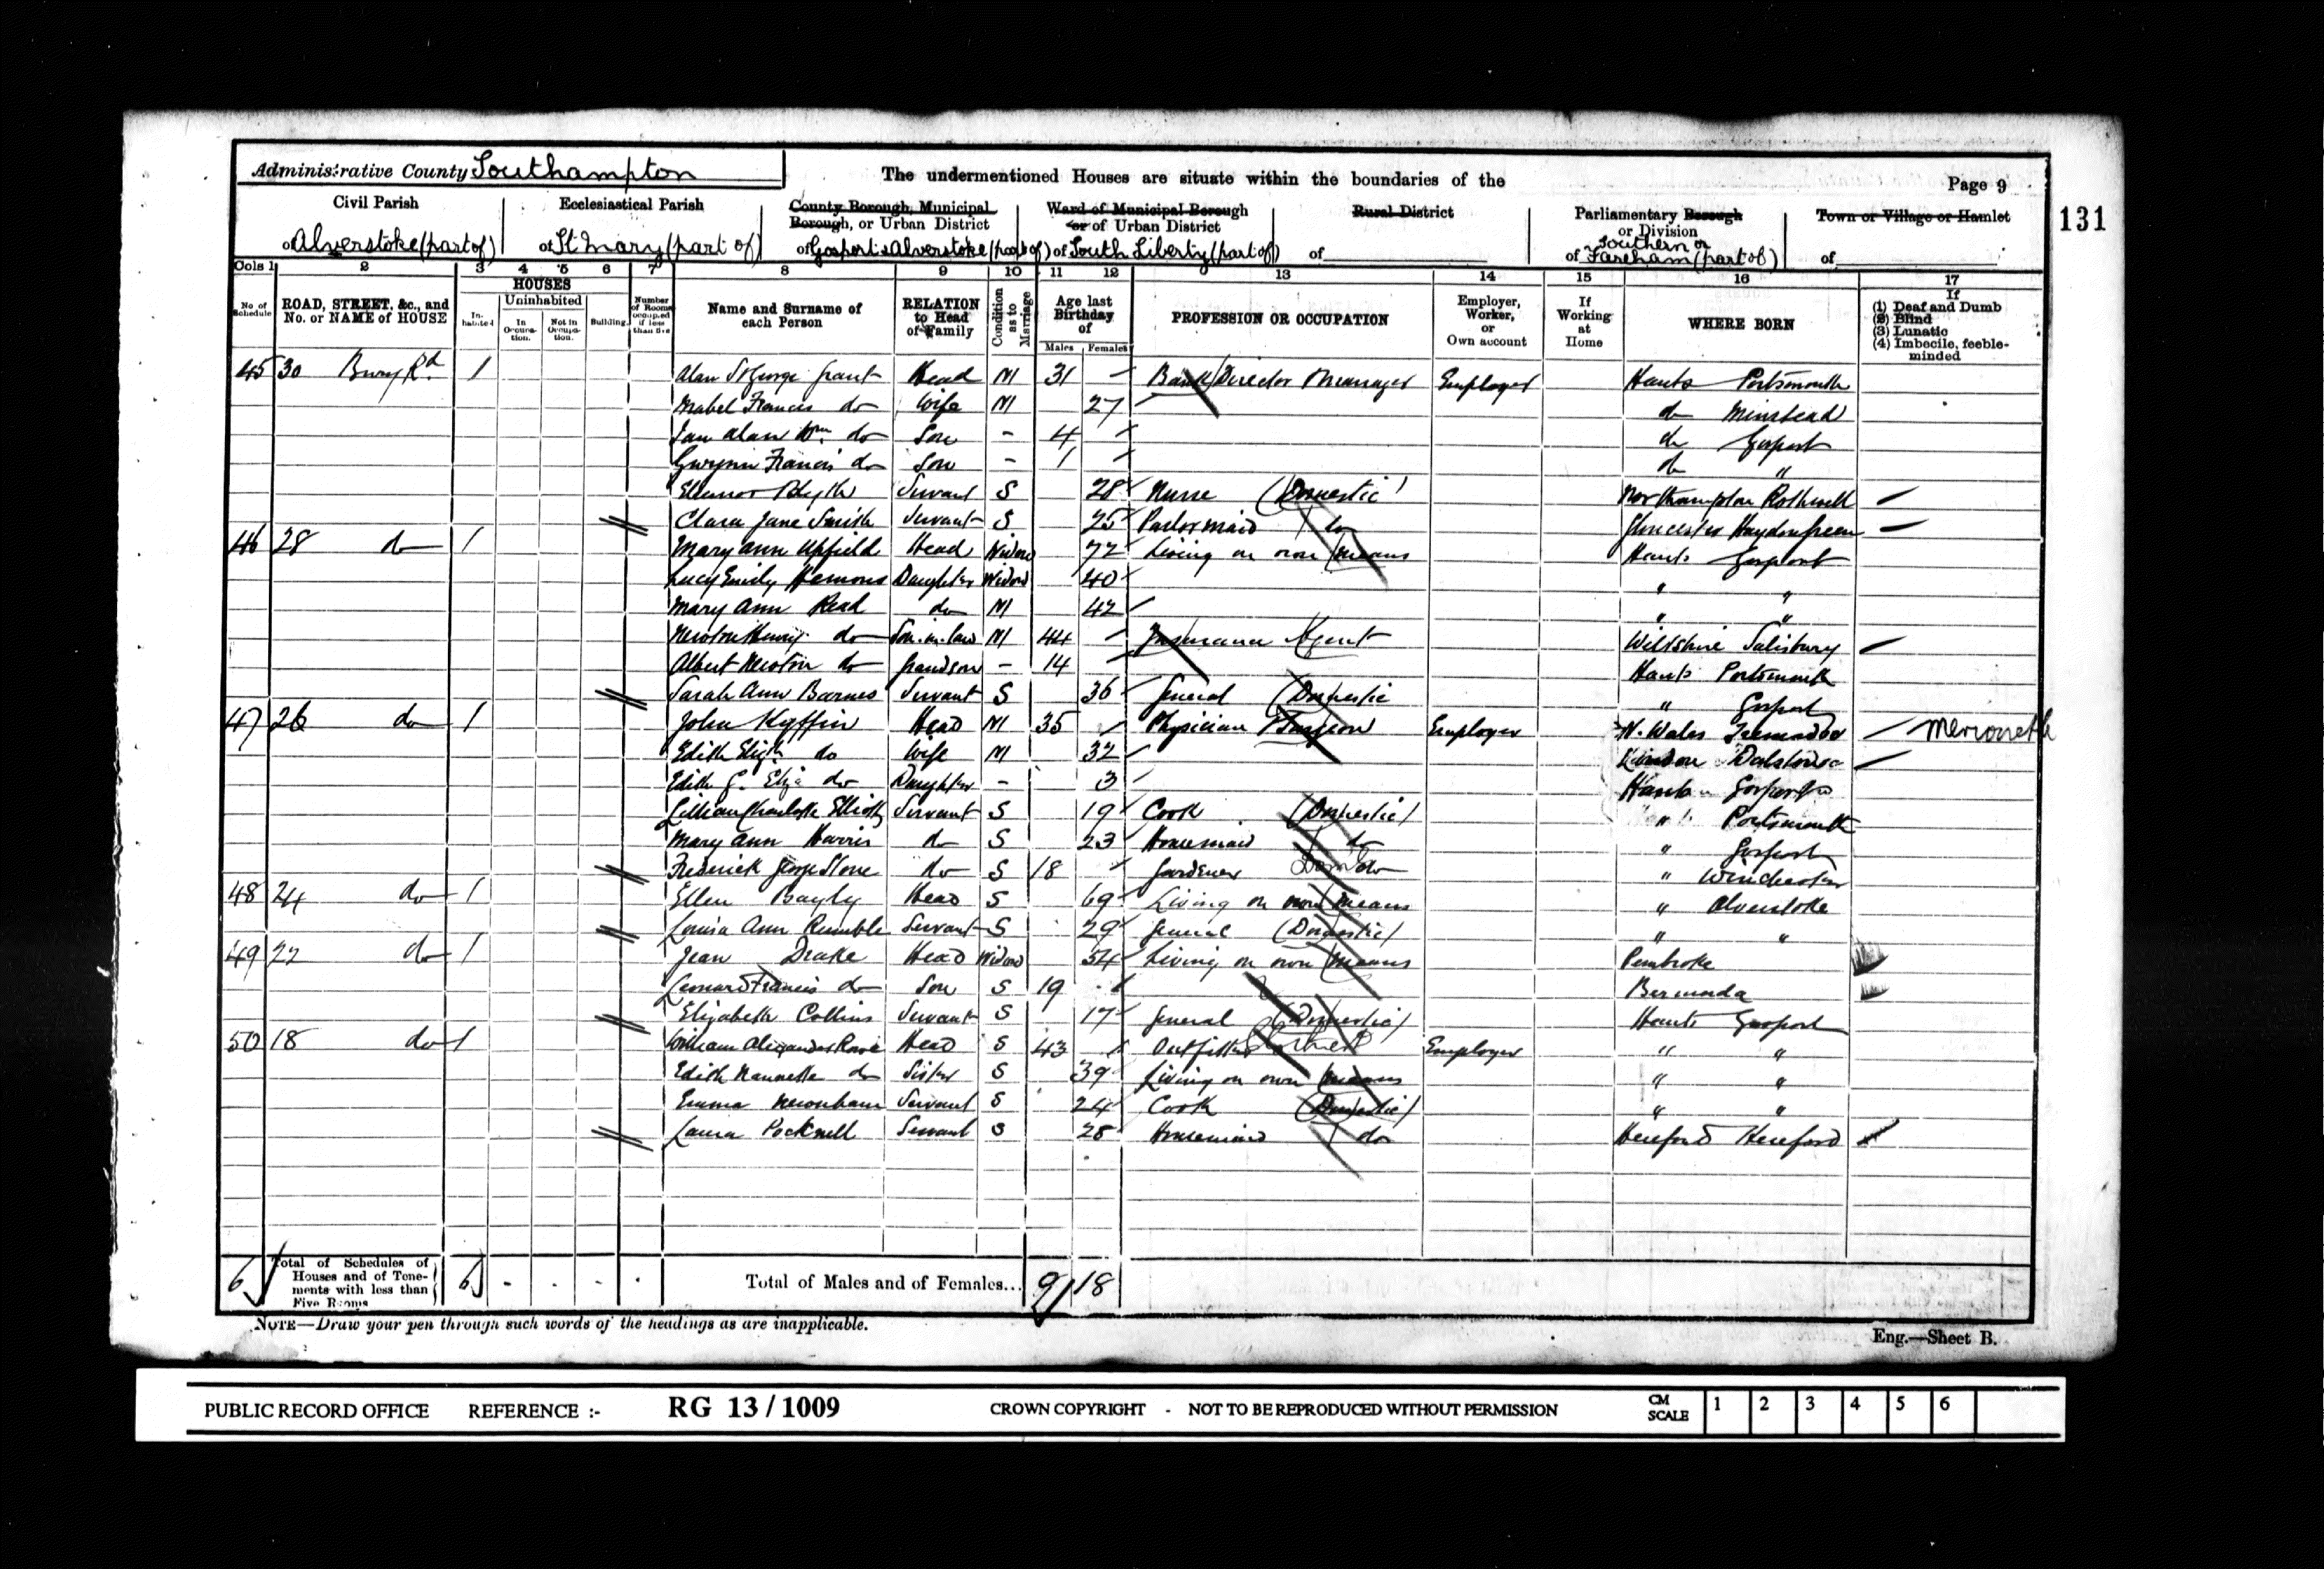 Administrative County Southampton
The undermentioned Houses are situate within the boundaries of the
Page 9
131
Civil Parish
of Alverstoke (part of)
Ecclesiastical Parish
of St Mary (part of)
County Borough, Municipal Borough, or Urban District
of Gosport & Alverstoke (part of)
Ward of Municipal Borough or of Urban District
of South Liberty (part of)
Rural District
of
Parliamentary Borough or Division
of Southern or Fareham (part of)
Town or Village or Hamlet
of
Cols 1 2 3 4 5 6 7 8 9 10 11 12 13 14 15 16 17
No. of Schedule
ROAD, STREET, &c., and No. or NAME of HOUSE
HOUSES
Inhabited
Uninhabited
In Occupation.
Not in Occupation.
Building.
Number of Rooms occupied if less than five
Name and Surname of each Person
RELATION to Head of Family
Condition as to Marriage
Age last Birthday of
Males Females
PROFESSION OR OCCUPATION
Employer, Worker, or Own account
If Working at Home
WHERE BORN
If
(1) Deaf and Dumb
(2) Blind
(3) Lunatic
(4) Imbecile, feeble-minded
45 30 Bury Rd 1 Alan St George Grant Head M 31 Bank Director Manager Employer Hants Portsmouth
Mabel Frances do Wife M 27 do Minstead
Ian Alan Wm do Son - 4 do Gosport
Gwynn Francis do Son - 1 do "
Eleanor Blyth Servant S 28 Nurse (Domestic) Northampton Rothwell
Clara Jane Smith Servant S 25 Parlormaid do Gloucester Haydon Green
46 28 do 1 Mary Ann Upfield Head Widow 72 Living on own means Hants Gosport
Lucy Emily Hemons Daughter Widow 40 " "
Mary Ann Read do M 42 " "
Newton Henry do Son-in-law M 44 Insurance Agent Wiltshire Salisbury
Albert Newton do Grandson - 14 Hants Portsmouth
Sarah Ann Barnes Servant S 36 General (Domestic " Gosport
47 26 do 1 John Kyffin Head M 35 Physician Surgeon Employer N. Wales Merioneth
Edith Elizth do Wife M 32 London Dalston
Edith G. Eliza do Daughter - 3 Hants Gosport
Lillian Charlotte Elliott Servant S 19 Cook (Domestic) " Portsmouth
Mary Ann Harris do S 23 Housemaid do " Gosport
Frederick George Stone do S 18 Gardener Dom do " Winchester
48 24 do 1 Ellen Bayly Head S 69 Living on own means " Alverstoke
Louisa Ann Rumble Servant S 29 General (Domestic) " "
49 22 do 1 Jean Drake Head Widow 54 Living on own means Pembroke
Leonard Francis do Son S 19 Bermuda
Elizabeth Collins Servant S 17 General (Domestic) Hants Gosport
50 18 do 1 William Alexander Rowe Head S 43 Outfitter Employer " "
Edith Nannette do Sister S 39 Living on own means " "
Emma Newnham Servant S 24 Cook (Domestic) " "
Laura Pocknell Servant S 28 Housemaid do Hereford Hereford
6 Total of Schedules of Houses and of Tenements with less than Five Rooms 6 - - - Total of Males and of Females... 9 18
NOTE—Draw your pen through such words of the headings as are inapplicable.
Eng.—Sheet B.
PUBLIC RECORD OFFICE REFERENCE :- RG 13 / 1009 CROWN COPYRIGHT - NOT TO BE REPRODUCED WITHOUT PERMISSION CM SCALE 1 2 3 4 5 6